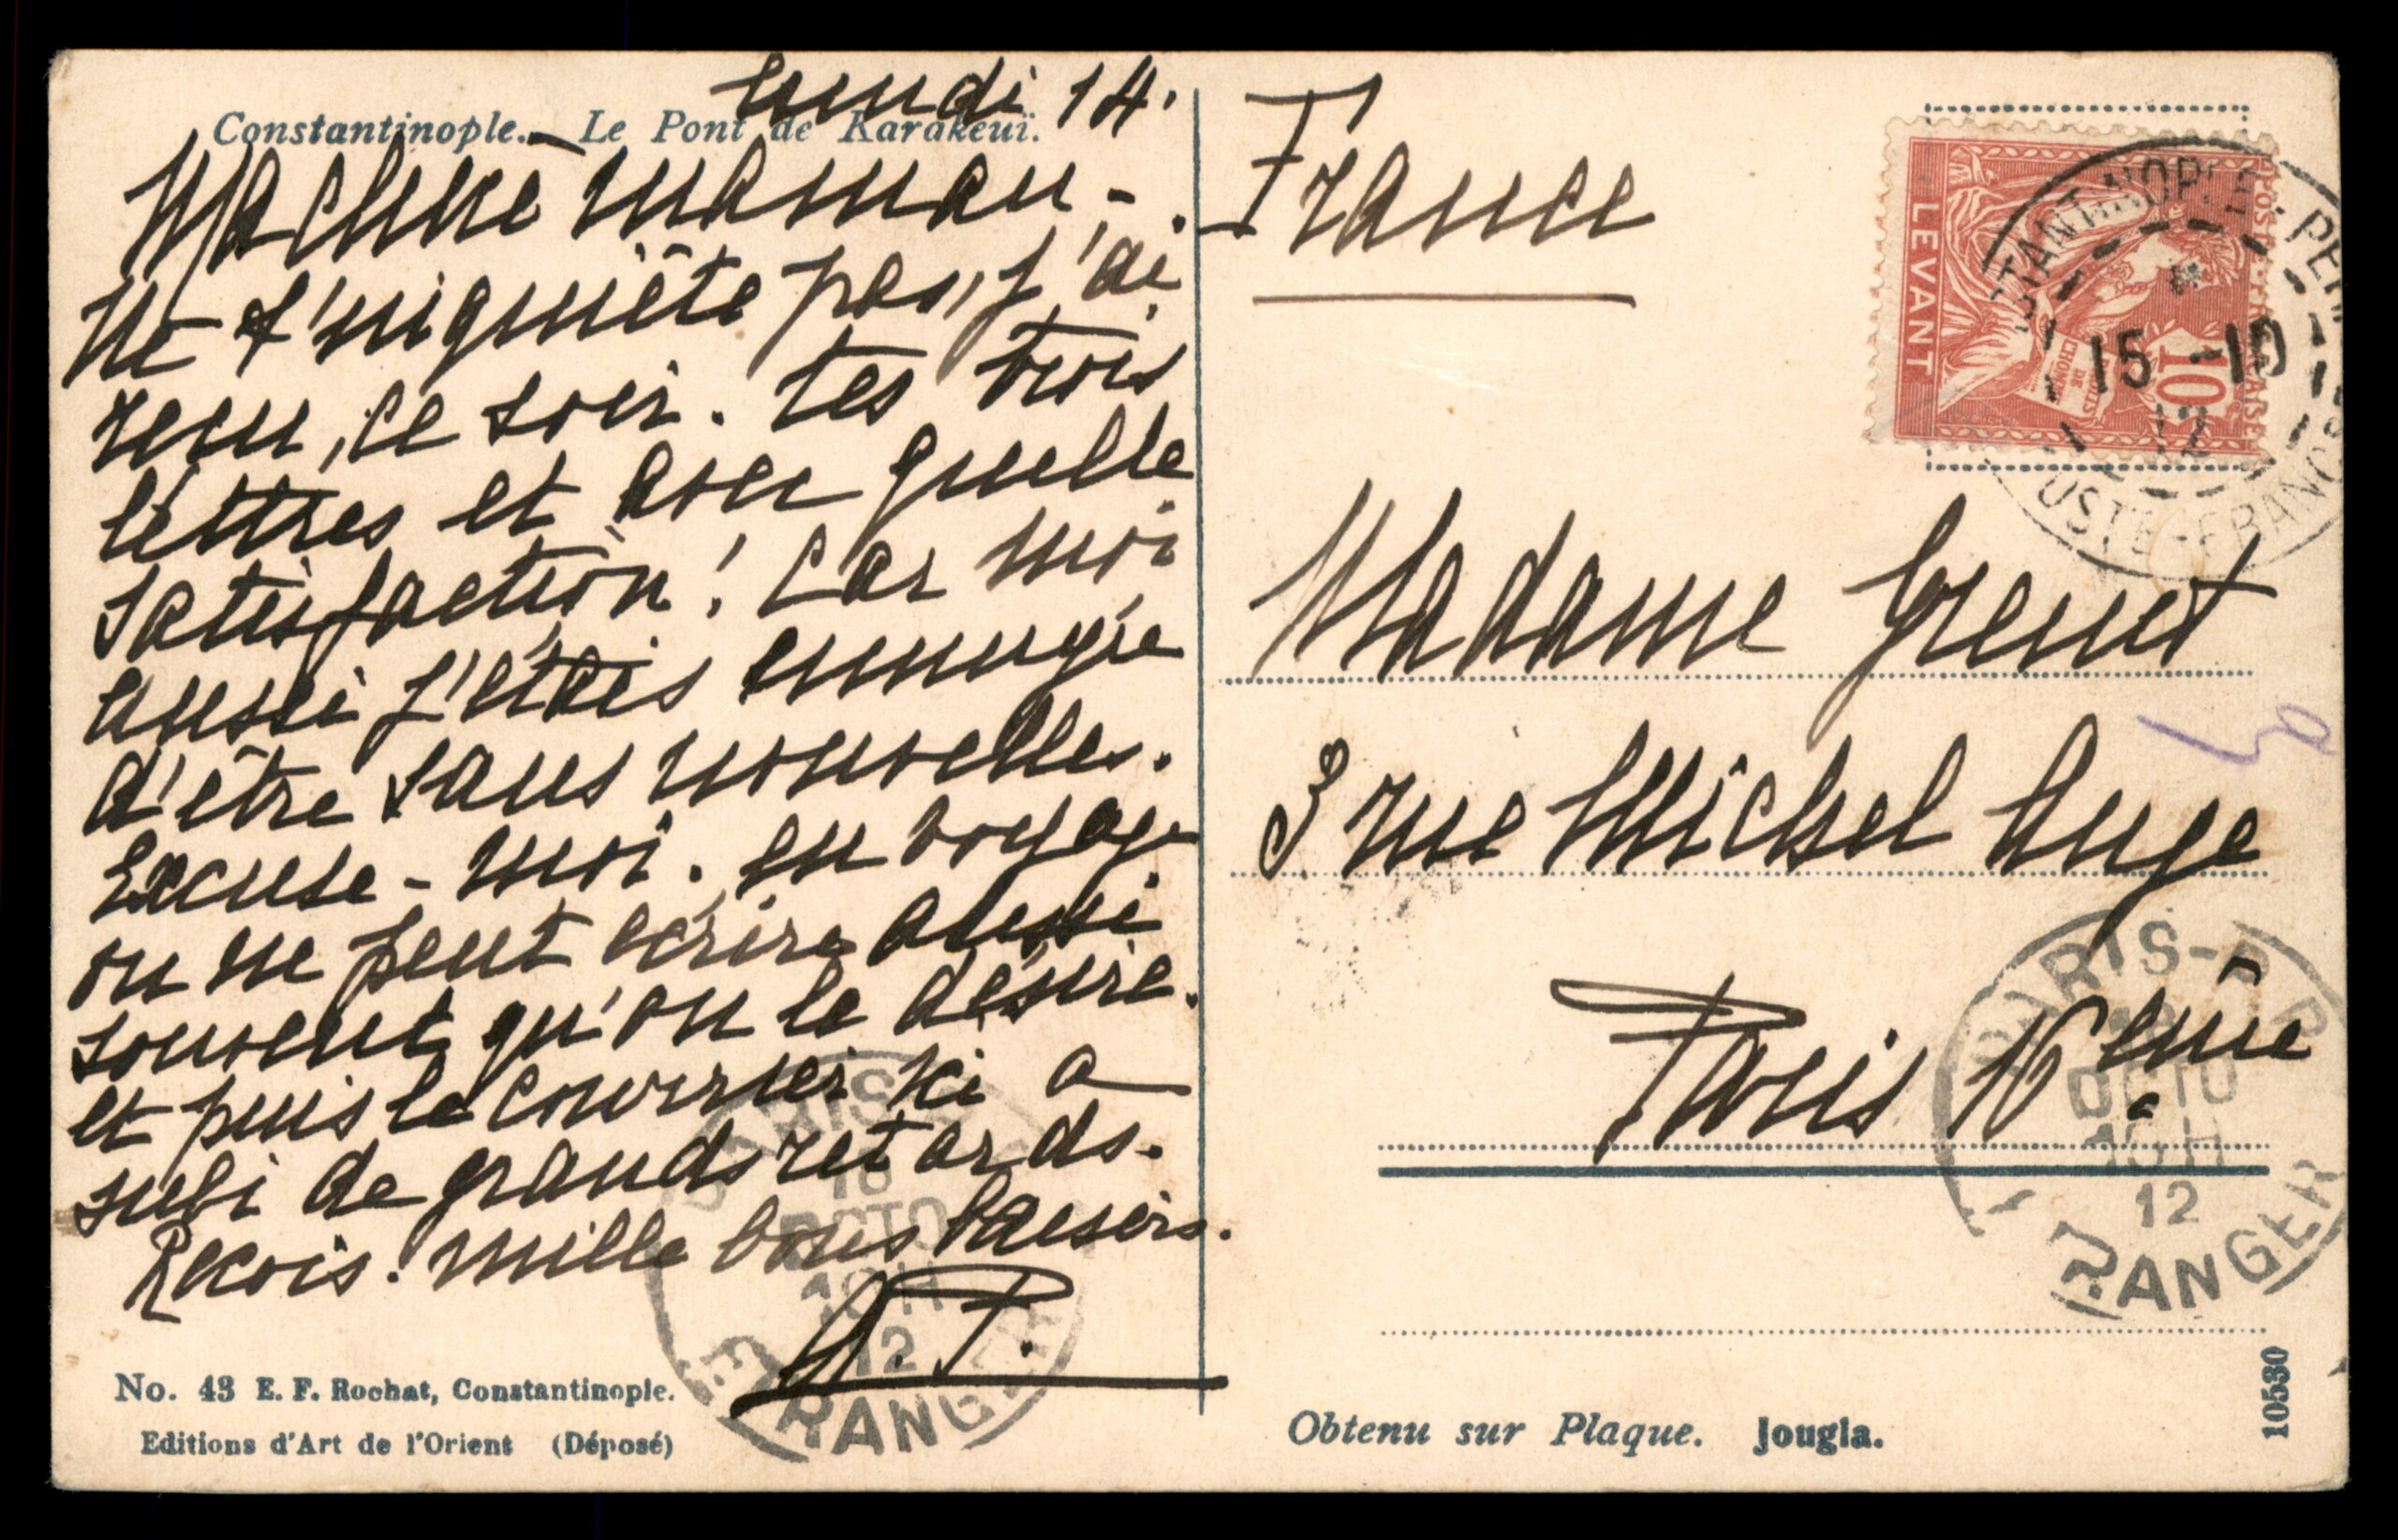 lundi 14.
Constantinople. - Le Pont de Karakeuï.
Ma chère maman -
Ne t'inquiète pas, j'ai
reçu, ce soir. tes trois
lettres et avec quelle
satisfaction! Car moi
aussi j'étais ennuyée
d'être sans nouvelles.
Excuse-moi. en voyage
on ne peut écrire aussi
souvent qu'on le désire.
et puis le courrier ici a
subi de grands retards.
Reçois. mille bons baisers.
No. 43 E. F. Rochat, Constantinople.
Editions d'Art de l'Orient (Déposé)
France
LEVANT
10
CONSTANTINOPLE - PERA
15 -10
12
POSTE FRANÇ
Madame Grenet
3 rue Michel Ange
Paris 16ème
PARIS
OCTO
10 H
12
ETRANGER
PARIS
18
OCTO
10 H
12
ETRANGER
Obtenu sur Plaque. Jougla.
10530